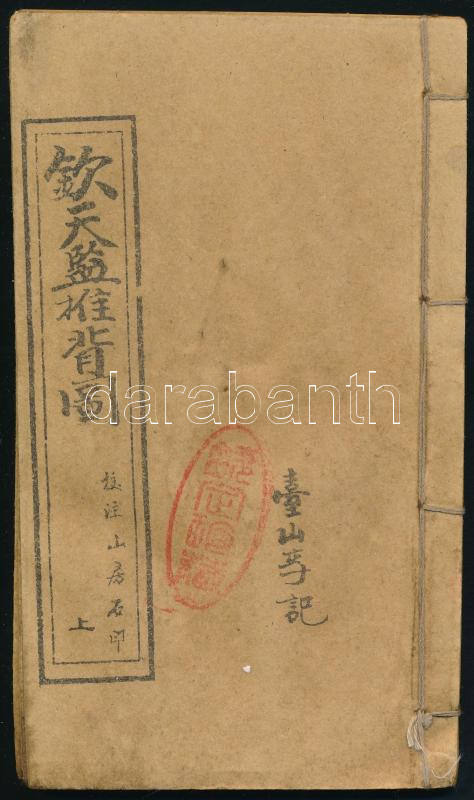 欽天監推背圖
校注山房石印
上
臺山李記
darabanth